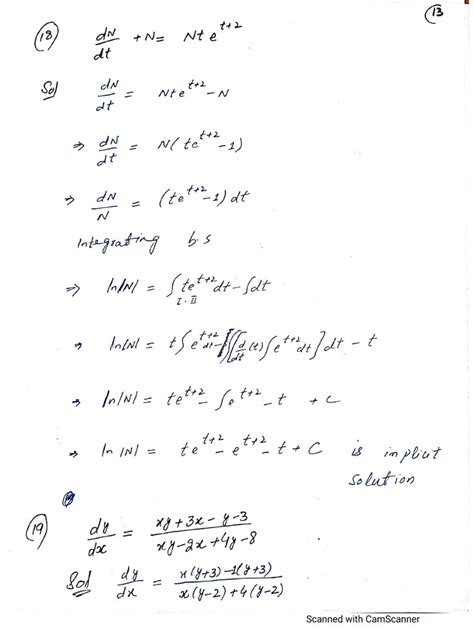 (13)
(18) dN/dt + N = Nt e^{t+2}
Sol dN/dt = Nt e^{t+2} - N
⇒ dN/dt = N(te^{t+2} - 1)
⇒ dN/N = (te^{t+2} - 1) dt
Integrating b.s
⇒ ln|N| = ∫te^{t+2} dt - ∫dt
I . II
⇒ ln|N| = t∫e^{t+2} dt - ∫[d/dt (t) ∫e^{t+2} dt] dt - t
⇒ ln|N| = te^{t+2} - ∫e^{t+2} - t + C
⇒ ln|N| = te^{t+2} - e^{t+2} - t + C is implicit
solution
(19) dy/dx = xy + 3x - y - 3 / xy - 2x + 4y - 8
Sol dy/dx = x(y+3) - 1(y+3) / x(y-2) + 4(y-2)
Scanned with CamScanner